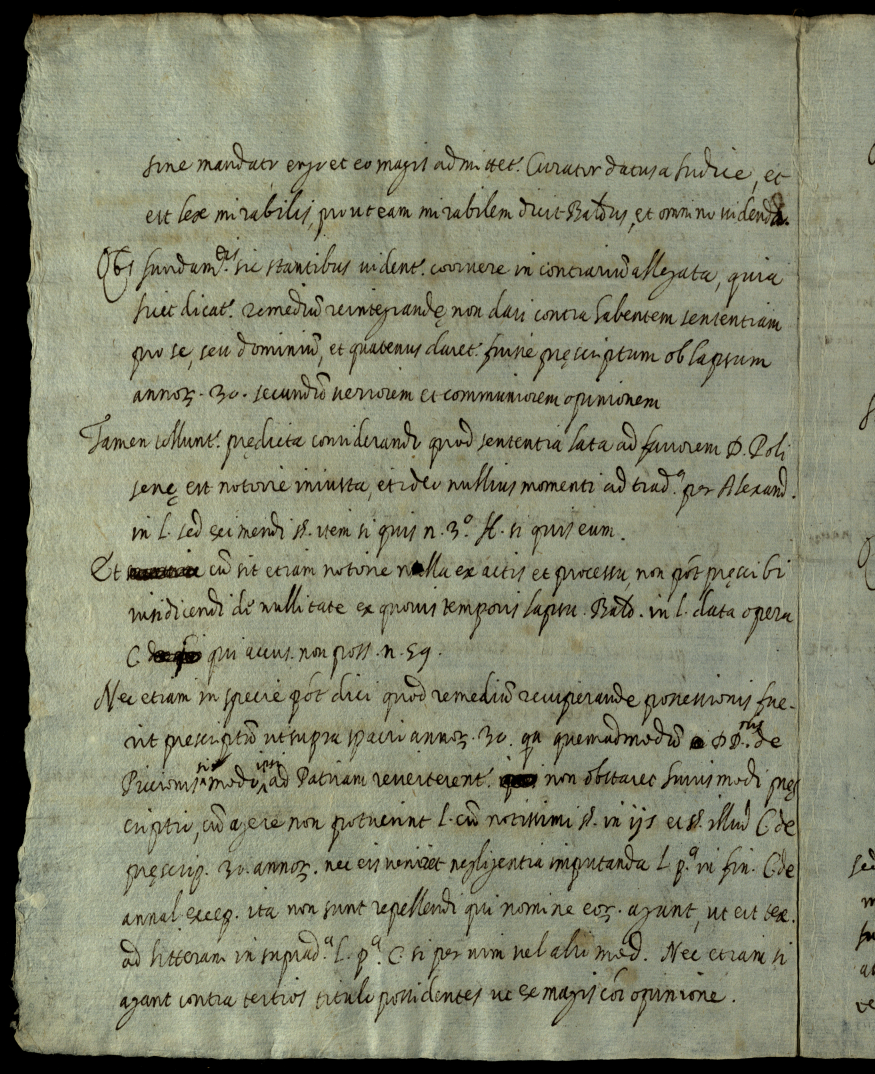 sine mandato ergo et eo magis admittet. Curator datus a Iudice, et
est tex mirabilis, prout eam mirabilem dicit Baldus, et omnino vidend
fundam.tis sic stantibus vident. corruere in contrariũ allegata, quia
licet dicat. remediũ reintegrandę non dari contra habentem sententiam
pro se, seu dominiũ, et quatenus daret. fuisse pręscriptum ob lapsum
annoꝝ. 30. secundũ veriorem et communiorem opinionem
Tamen tollunt. prędicta considerando quod sententia lata ad favorem D. Poli
senę est notorie iniusta, et ideo nullius momenti ad trad.a per Alexand.
in L. sed eximendi §. item si quis n. 3.o ff. si quis eum.
Et cũ sit etiam notorie nulla ex actis et processu, non põt pręscribi
iuri dicendi de nullitate ex quovis temporis lapsu. Bald. in L. data opera
C. qui accus. non poss. n. 59.
Nec etiam in specie põt dici quod remediũ recuperande possessionis fue-
rit prescriptũ ut supra spatio annoꝝ. 30. qa quemadmodũ DD.nis de
si modo ipsi ad Patriam reverterent. non obstaret huiusmodi pręs
criptio, cũ agere non potuerint L. cũ notissimi §. in ijs et §. illud C. de
pręscrip. 30. annoꝝ. nec eis veniret negligentia imputanda L. p.a in fin. C. de
annal. excep. ita non sunt repellendi qui nomine eoꝝ. agunt, ut est tex.
ad litteram in suprad.a L. p.a C. si per vim vel alio mod. Nec etiam si
agant contra tertios titulo possidentes ut ex magis cõi opinione.